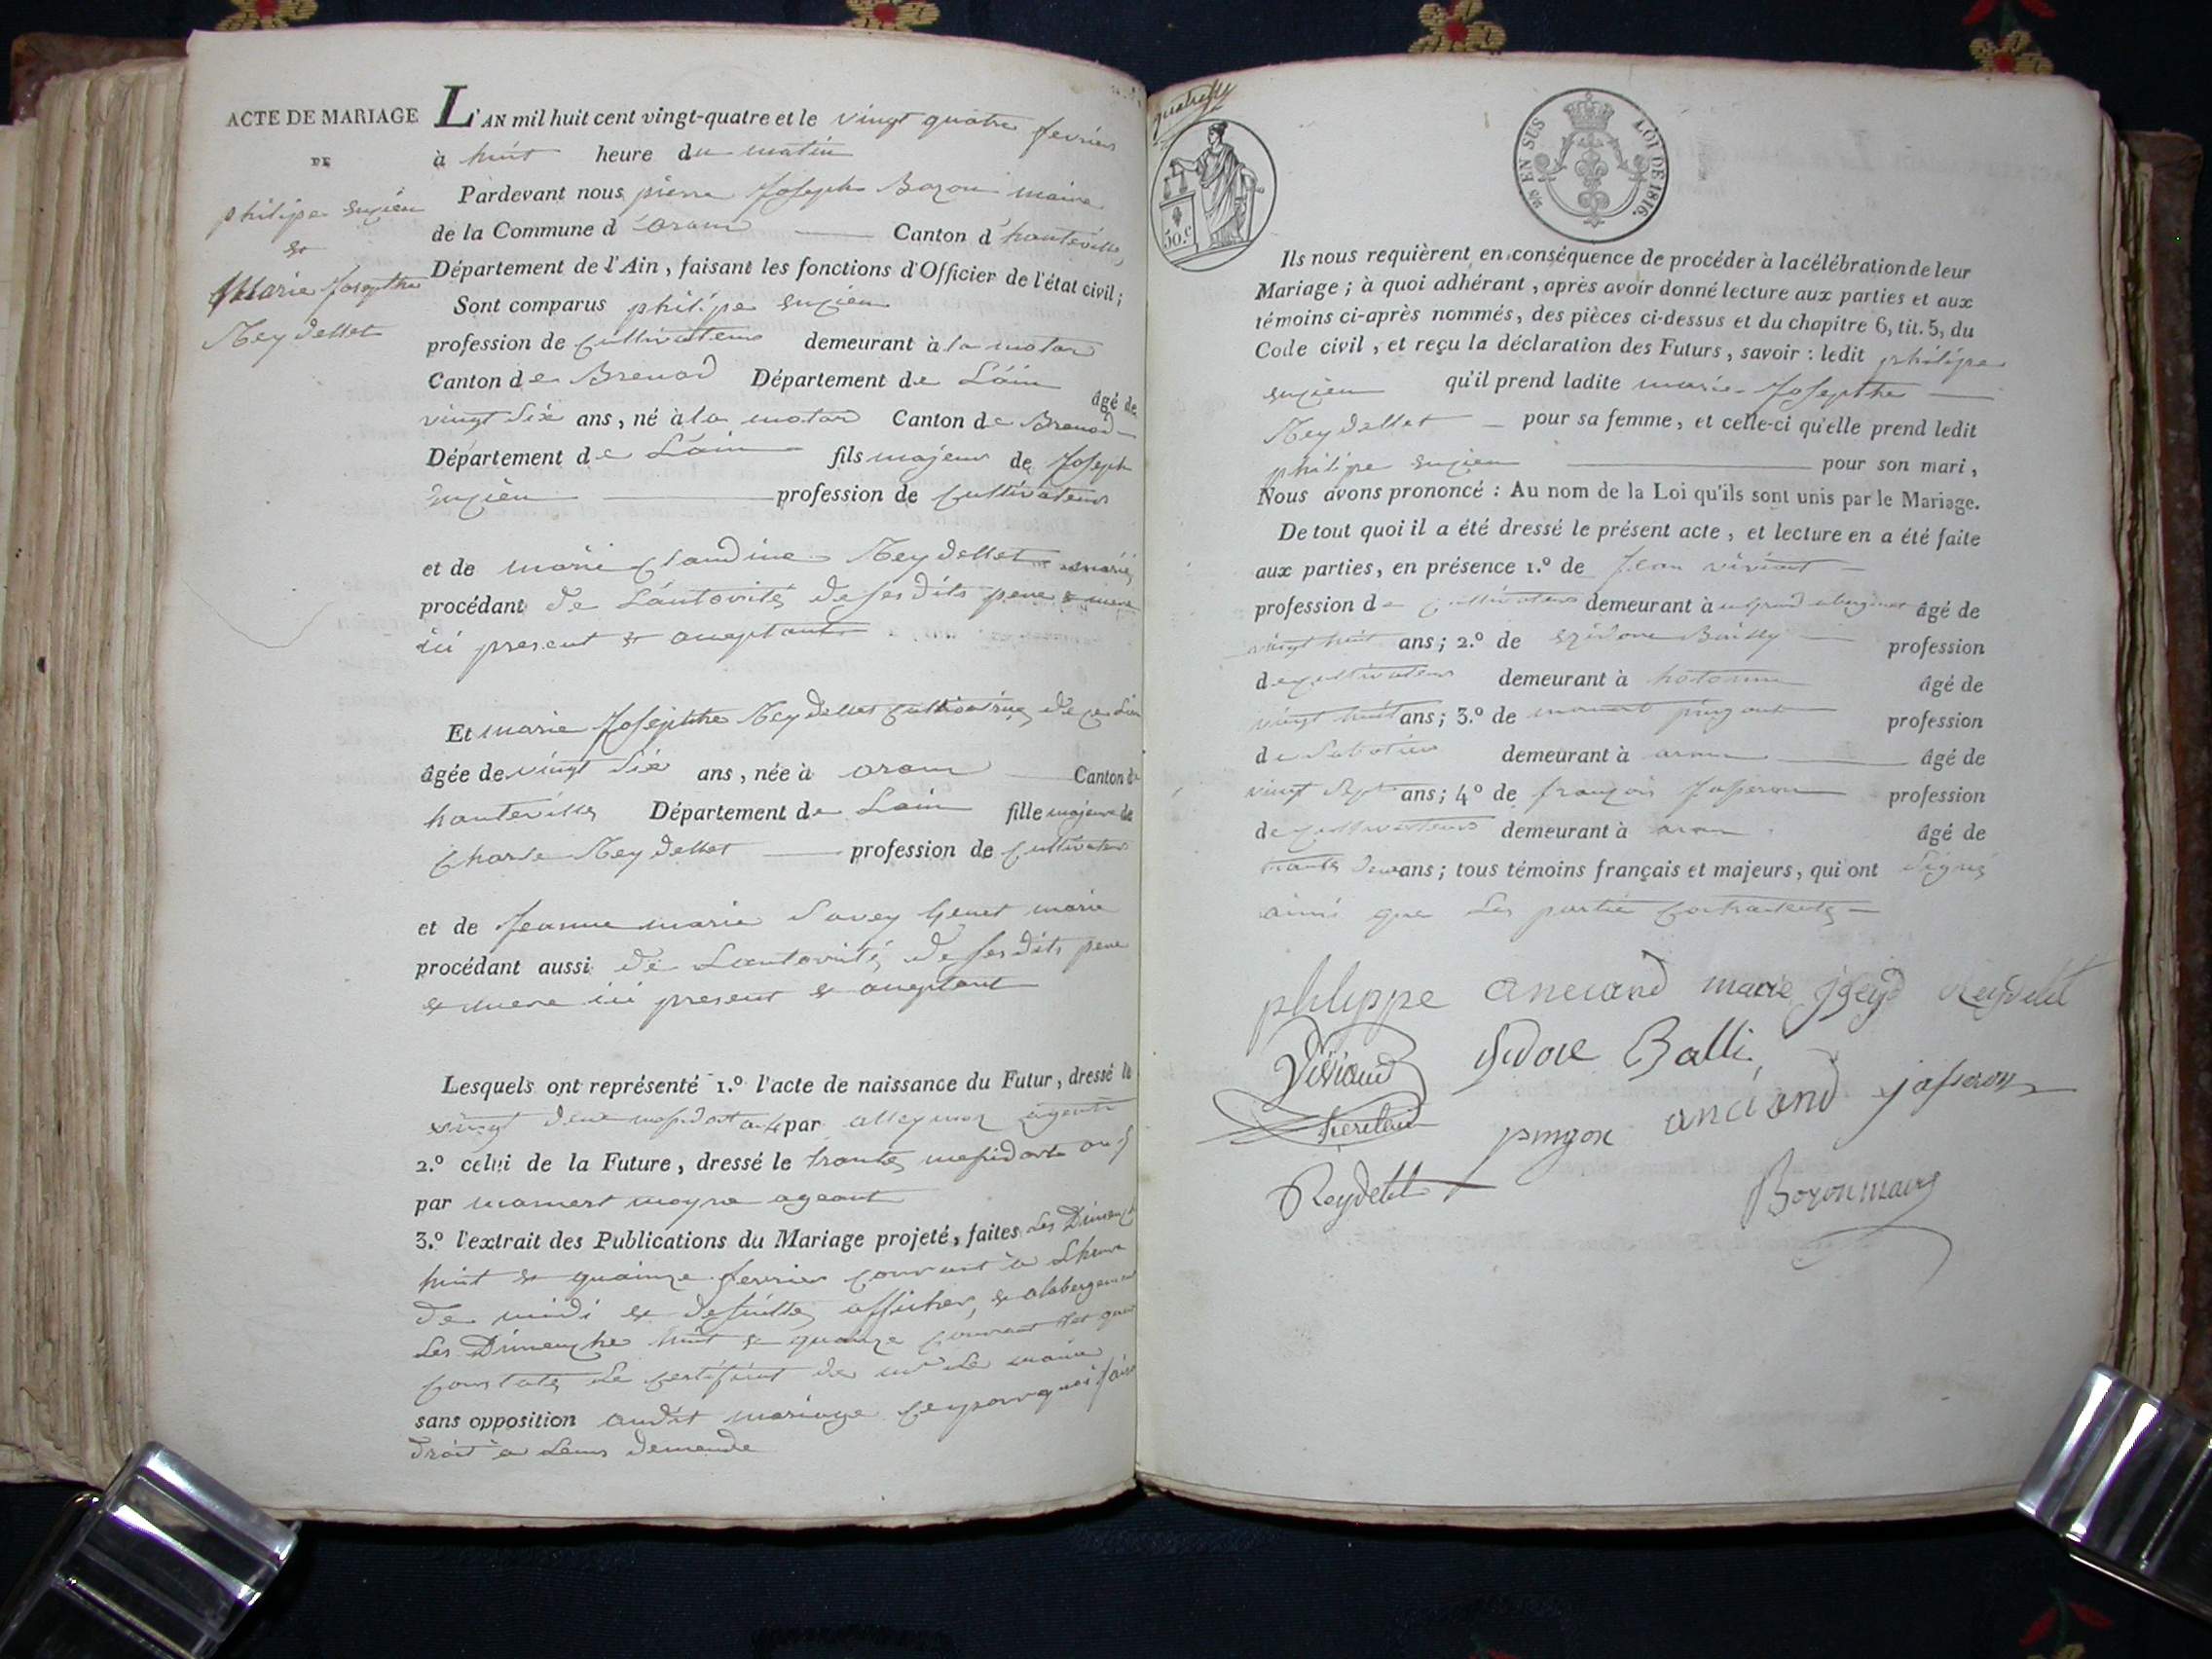 ACTE DE MARIAGE
DE
philipe
et
Marie Josephte
Reydellet
L'AN mil huit cent vingt-quatre et le vingt quatre fevrier
à huit heure du matin
Pardevant nous pierre Joseph Bozon maire
de la Commune d'aranc Canton d'hauteville,
Département de l'Ain, faisant les fonctions d'Officier de l'état civil;
Sont comparus philipe
profession de cultivateur demeurant à la
Canton de Brenod Département de L'ain âgé de
vingt six ans, né à la Canton de Brenod
Département de L'ain fils majeur de Joseph
profession de cultivateur
et de marie Claudine Reydellet mariés
procédant de L'autorité de ses dits pere & mere
ici present & acceptant
Et marie Josephte Reydellet cultivatrice de ce Lieu
âgée de vingt six ans, née à aranc Canton de
hauteville Département de Lain fille majeure de
Charle Reydellet profession de cultivateur
et de Jeanne marie Savey marié
procédant aussi de L'autorité de ses dits pere
& mere ici present & acceptant
Lesquels ont représenté 1.º l'acte de naissance du Futur, dressé le
vingt par
2.º celui de la Future, dressé le trante messidort an 5
par mamert moyne ageant
3.º l'extrait des Publications du Mariage projeté, faites Les Dimenche
huit & quainze fevrier courant à L'heure
de midi & de suitte afficher, &
Les Dimenche huit & quainze courant
constate Le certificat de mr Le maire
sans opposition audit mariage
droit à Leurs demande
50.c
EN SUS LOI DE 1816.
Ils nous requièrent en conséquence de procéder à la célébration de leur
Mariage; à quoi adhérant, après avoir donné lecture aux parties et aux
témoins ci-après nommés, des pièces ci-dessus et du chapitre 6, tit. 5, du
Code civil, et reçu la déclaration des Futurs, savoir : ledit philipe
qu'il prend ladite marie-Josephte
Reydellet pour sa femme, et celle-ci qu'elle prend ledit
philipe pour son mari,
Nous avons prononcé : Au nom de la Loi qu'ils sont unis par le Mariage.
De tout quoi il a été dressé le présent acte, et lecture en a été faite
aux parties, en présence 1.º de Jean
profession de cultivateur demeurant à âgé de
vingt huit ans; 2.º de profession
de cultivateur demeurant à hotonne âgé de
vingt huit ans; 3.º de mamert profession
de Sabotier demeurant à aranc âgé de
vingt sept ans; 4º de françois Jasseron profession
de cultivateur demeurant à aranc âgé de
trante deux ans; tous témoins français et majeurs, qui ont signés
ainsi que Les partie contractente
phlippe anciand marie Reydelet
Viviand Balli
anciand jasseron
pingon
Reydelet Bozon maire